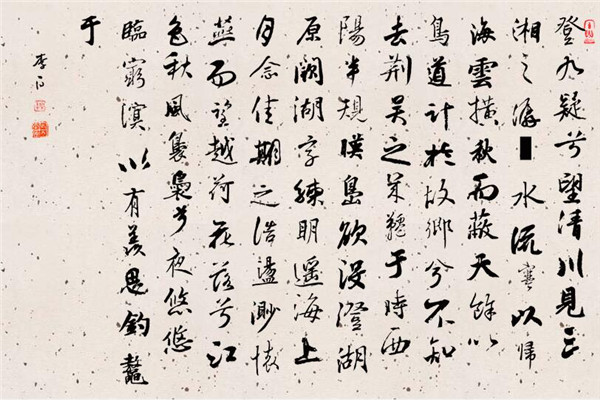 登九疑兮望清川見三
湘之潺■水流寒以歸
海雲橫秋而蔽天餘以
鳥道計於故鄉兮不知
去荊吳之韆于時西
陽半規映島欲沒澄湖
原闕湖字練明遙海上
月念佳期之浩盪渺懷
燕而望越荷花落兮江
色秋風裊裊兮夜悠悠
臨窮溟以有羨思釣鼇
于
李白